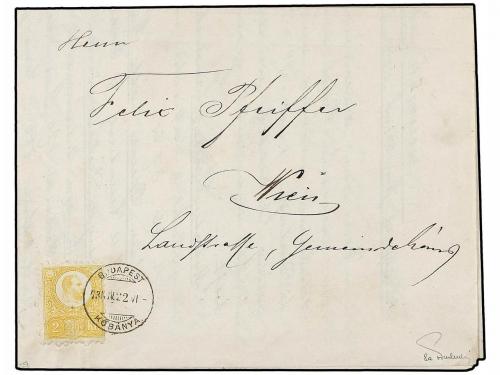 Herrn
Felix Pfeiffer
Wien
Landstrasse, Gemeindehaus
BUDAPEST
KŐBÁNYA
2